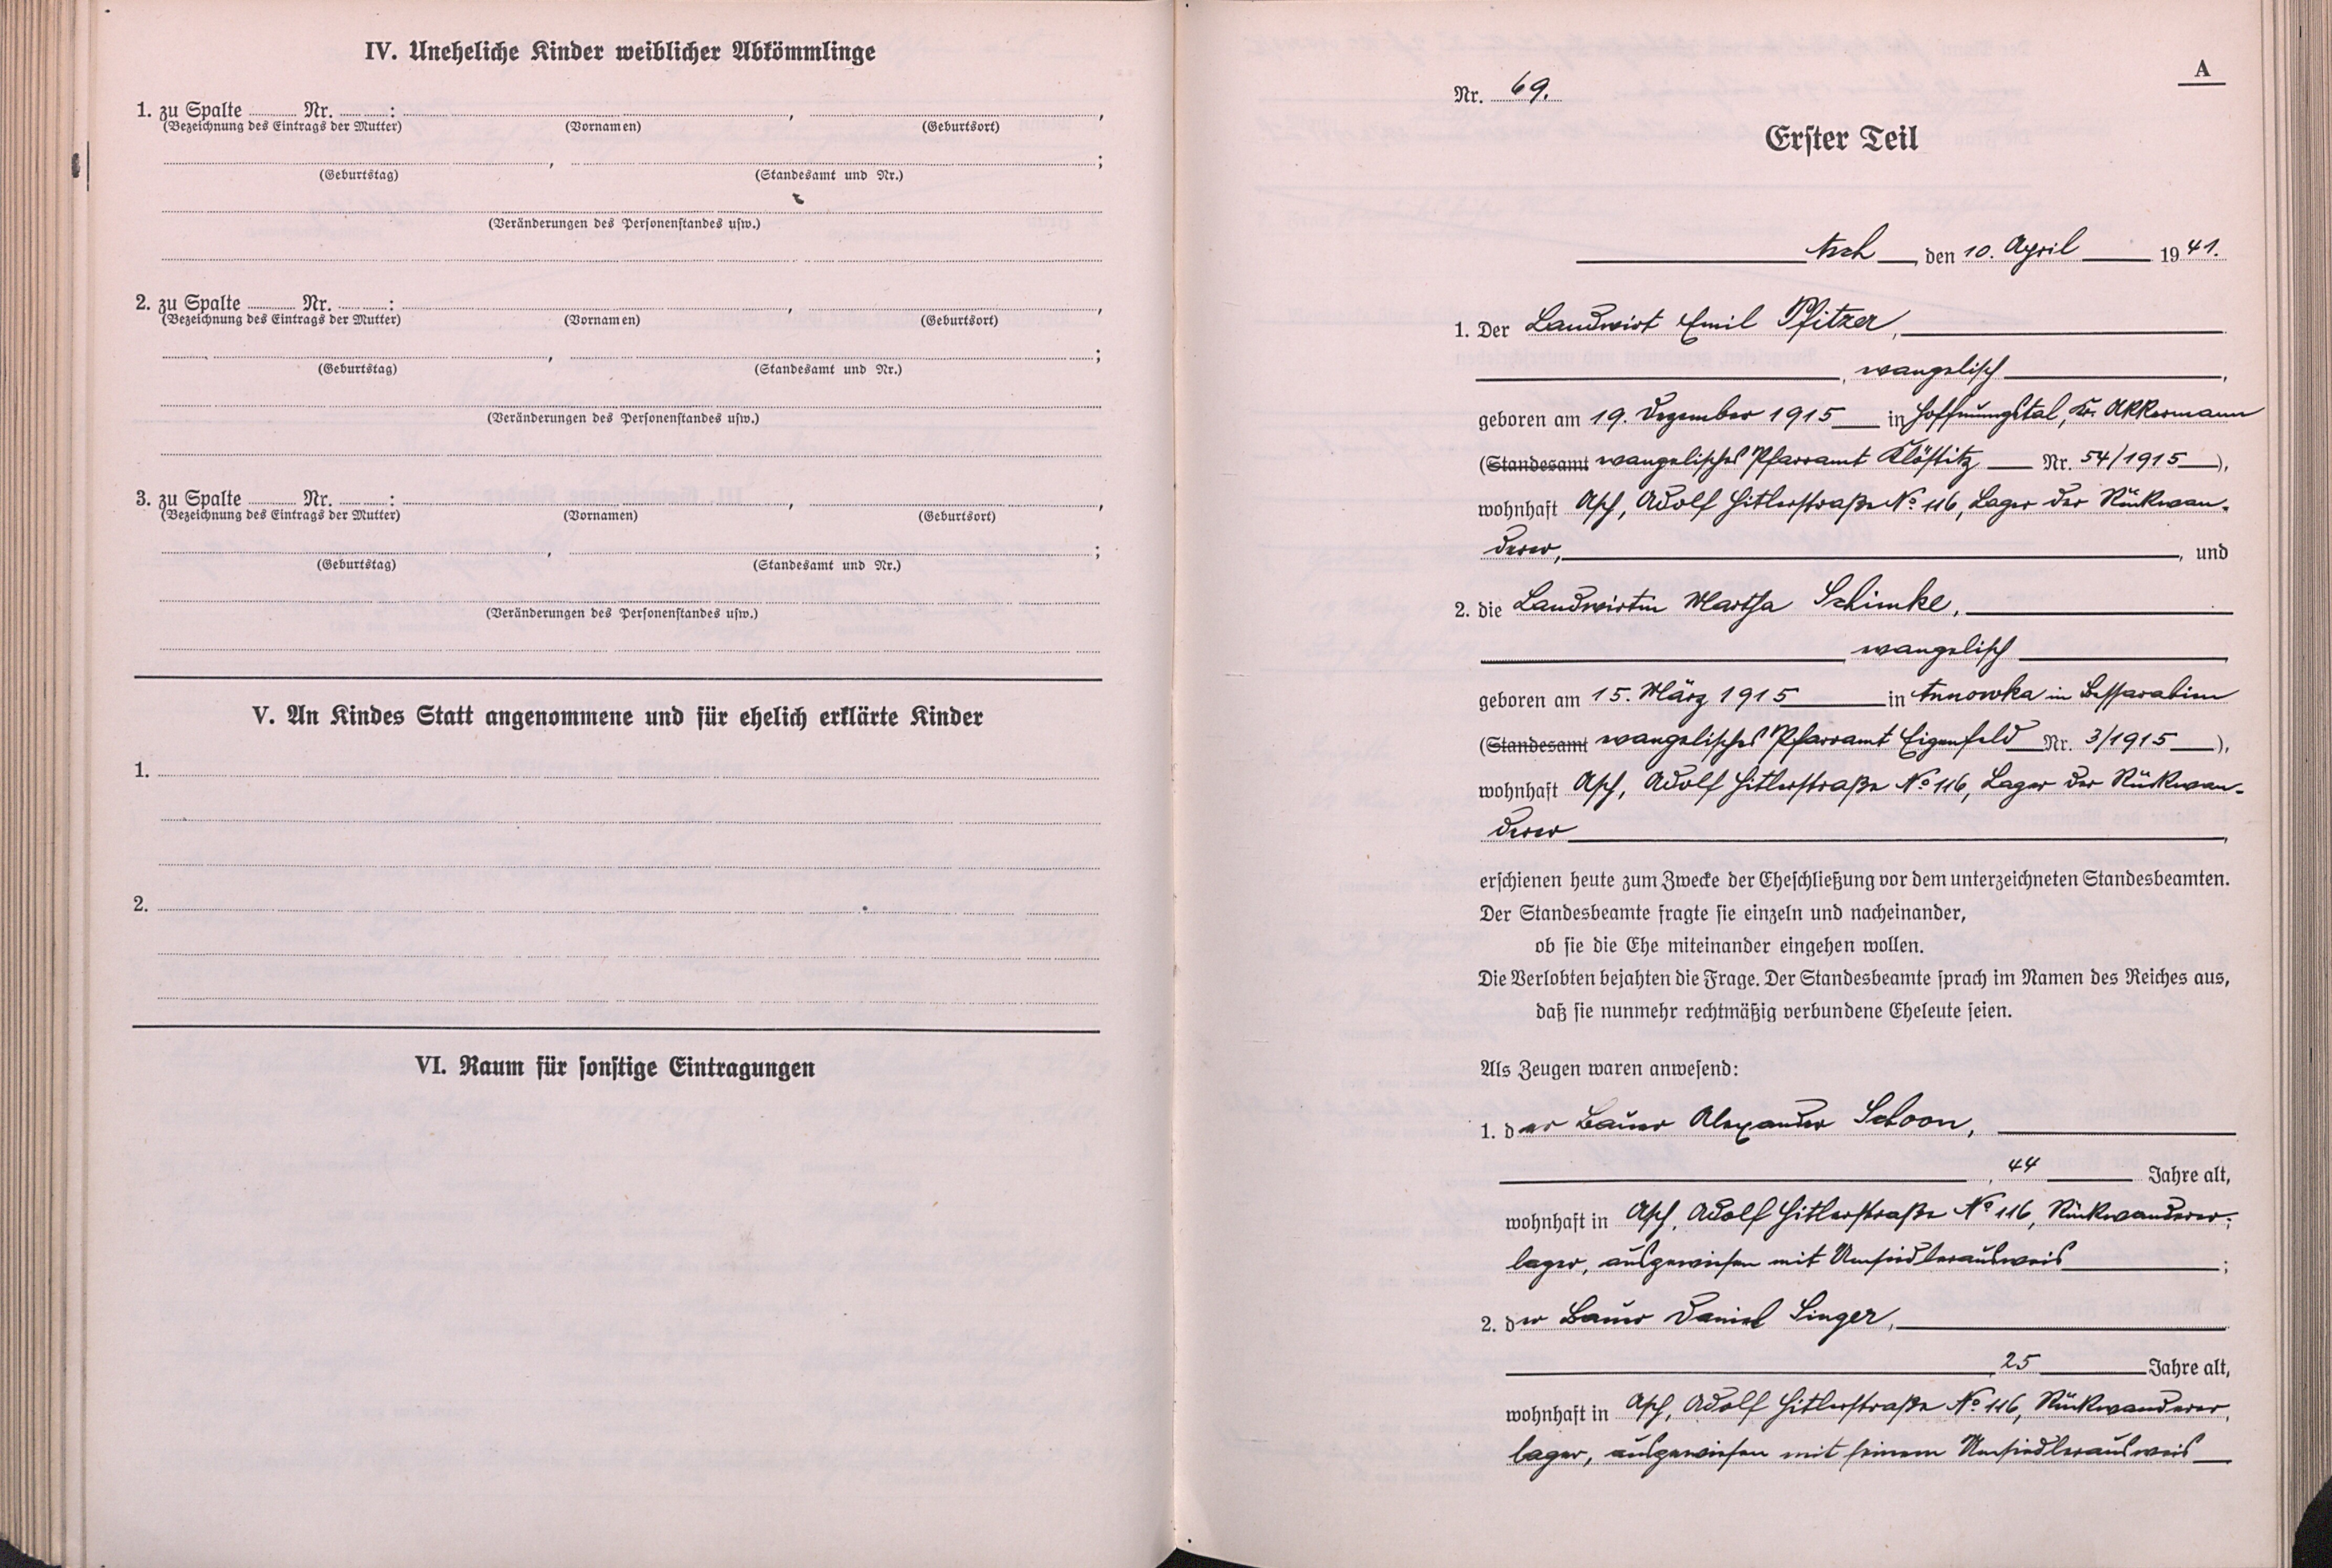 IV. Uneheliche Kinder weiblicher Abkömmlinge
1. zu Spalte ........ Nr. ........:
(Bezeichnung des Eintrags der Mutter) (Vornamen) (Geburtsort)
(Geburtstag) (Standesamt und Nr.)
(Veränderungen des Personenstandes usw.)
2. zu Spalte ........ Nr. ........:
(Bezeichnung des Eintrags der Mutter) (Vornamen) (Geburtsort)
(Geburtstag) (Standesamt und Nr.)
(Veränderungen des Personenstandes usw.)
3. zu Spalte ........ Nr. ........:
(Bezeichnung des Eintrags der Mutter) (Vornamen) (Geburtsort)
(Geburtstag) (Standesamt und Nr.)
(Veränderungen des Personenstandes usw.)
V. An Kindes Statt angenommene und für ehelich erklärte Kinder
1.
2.
VI. Raum für sonstige Eintragungen
A
Nr. 69.
Erster Teil
Asch, den 10. April 1941.
1. Der Landwirt Emil Pfitzer,
, evangelisch,
geboren am 19. Dezember 1915 in Hoffnungstal, Kr. Akkermann
(Standesamt evangelisches Pfarramt Klöstitz Nr. 54/1915),
wohnhaft Asch, Adolf Hitlerstraße No 116, Lager der Rückwan-
derer, , und
2. die Landwirtin Martha Schimke,
evangelisch,
geboren am 15. März 1915 in Annowka in Bessarabien
(Standesamt evangelisches Pfarramt Eigenfeld Nr. 3/1915),
wohnhaft Asch, Adolf Hitlerstraße No 116, Lager der Rückwan-
derer,
erschienen heute zum Zwecke der Eheschließung vor dem unterzeichneten Standesbeamten.
Der Standesbeamte fragte sie einzeln und nacheinander,
ob sie die Ehe miteinander eingehen wollen.
Die Verlobten bejahten die Frage. Der Standesbeamte sprach im Namen des Reiches aus,
daß sie nunmehr rechtmäßig verbundene Eheleute seien.
Als Zeugen waren anwesend:
1. der Bauer Alexander Schoon,
, 44 Jahre alt,
wohnhaft in Asch, Adolf Hitlerstraße No 116, Rückwanderer-
lager, ausgewiesen mit Umsiedlerausweis;
2. der Bauer Daniel Singer,
, 25 Jahre alt,
wohnhaft in Asch, Adolf Hitlerstraße No 116, Rückwanderer,
lager, ausgewiesen mit seinem Umsiedlerausweis